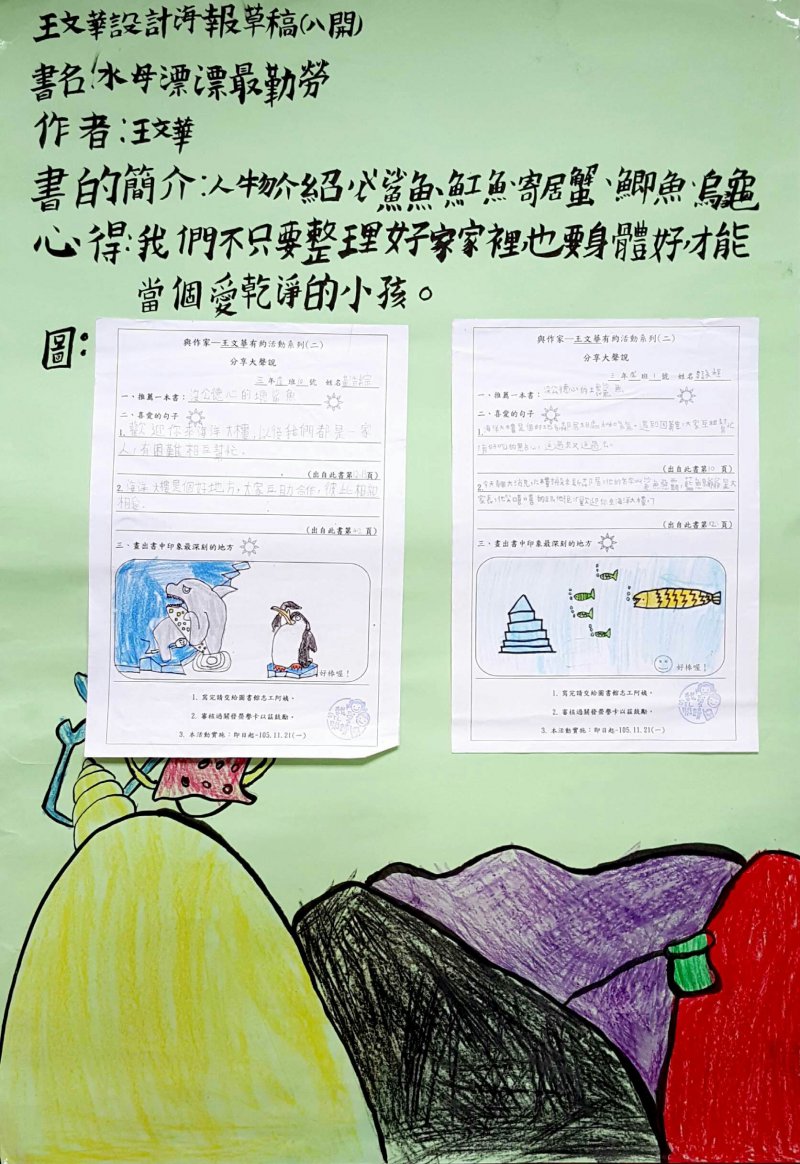 王文華設計海報草稿(八開)
書名:水母漂漂最勤勞
作者:王文華
書的簡介:人物介紹心鯊魚、魟魚、寄居蟹、鯽魚、烏龜
心得:我們不只要整理好家家裡也要身體好才能
當個愛乾淨的小孩。
圖:
與作家─王文華有約活動系列(二)
分享大聲說
三年 班 號 姓名
一、推薦一本書:沒公德心的 鯊魚
二、喜愛的句子
1. 歡迎你來海洋大樓,以後我們都是一家
人,有困難相互幫忙。
(出自此書第 頁)
2. 海洋大樓是個好地方,大家互助合作,彼此相親
相愛。
(出自此書第 頁)
三、畫出書中印象最深刻的地方
好棒喔!
1. 寫完請交給圖書館志工阿姨。
2. 審核過關發榮譽卡以茲鼓勵。
3. 本活動實施:即日起-105.11.21(一)
與作家─王文華有約活動系列(二)
分享大聲說
三年 班 號 姓名
一、推薦一本書:沒公德心的 鯊魚
二、喜愛的句子
1. 海洋大樓是個
(出自此書第10頁)
2. 今天
(出自此書第12頁)
三、畫出書中印象最深刻的地方
好棒喔!
1. 寫完請交給圖書館志工阿姨。
2. 審核過關發榮譽卡以茲鼓勵。
3. 本活動實施:即日起-105.11.21(一)